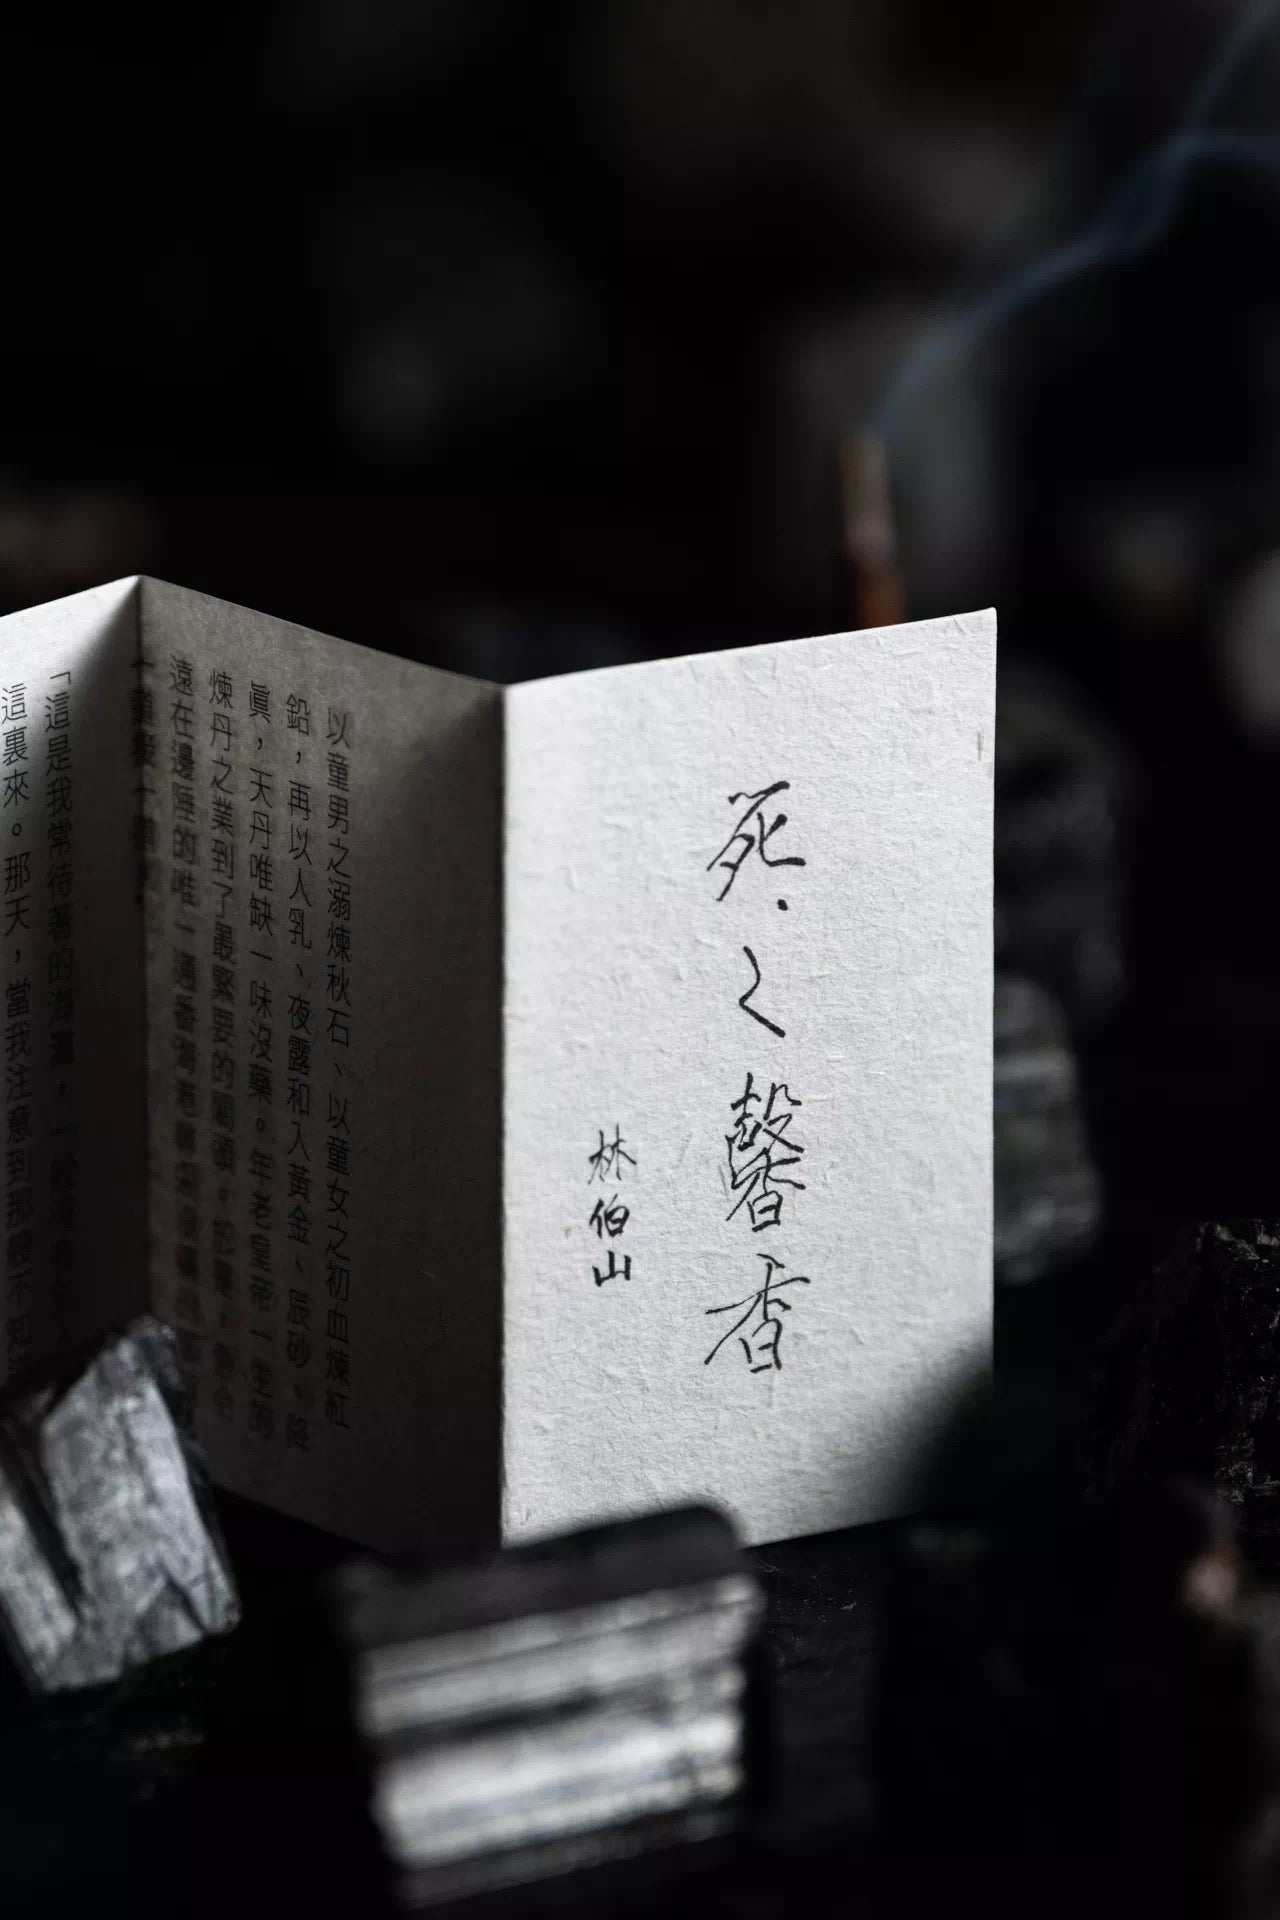 死之馨香
林伯山
以童男之溺煉秋石、以童女之初血煉紅
鉛，再以人乳、夜露和入黃金、辰砂，降
眞，天丹唯缺一味沒藥。年老皇帝一生的
煉丹之業到了最緊要的關頭。於是，
遠在邊陲的唯一通番灣港
「這是我常待著的海灣，
這裏來。那天，當我注意到那